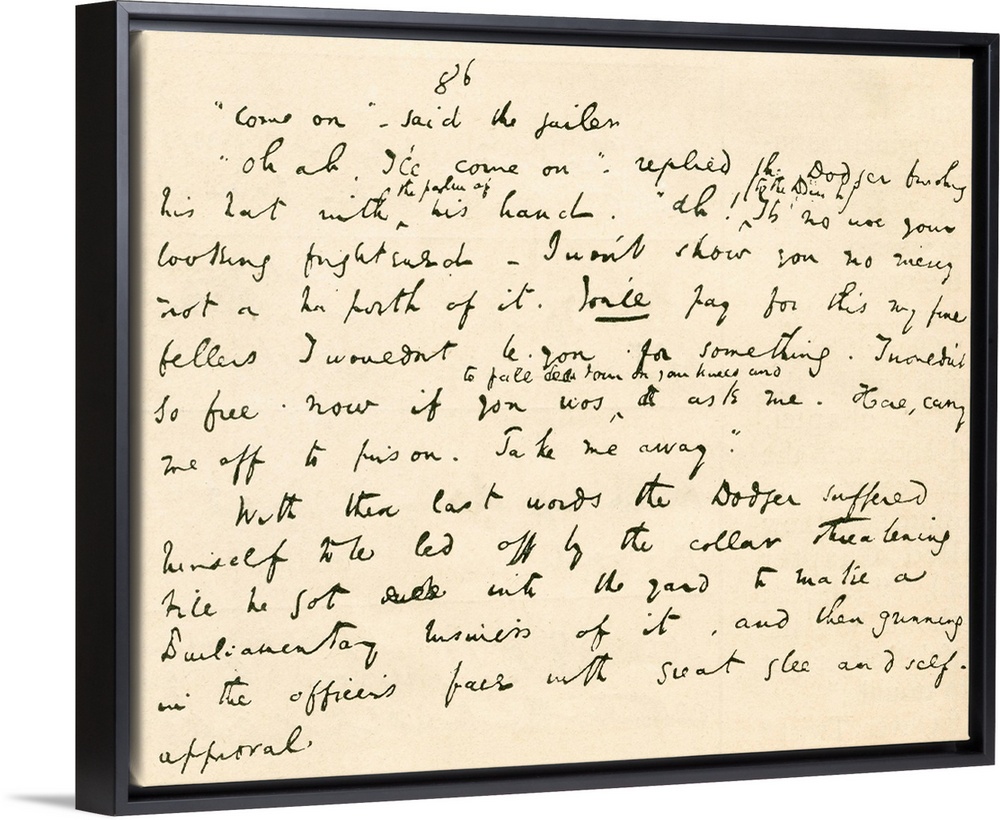 86
"Come on" - said the jailer
"Oh ah, I'll come on" - replied the Dodger brushing
his hat with ^the palm of^ his hand. "Ah! ^(to the Bench)^ It's no use your
looking frightened - I won't show you no mercy
not a ha'porth of it. You'll pay for this my fine
fellers I wouldn't be you for something. I wouldn't
so free now if you wos, ^to fall down on your knees and^ ask me. Here, carry
me off to prison. Take me away."
With these last words the Dodger suffered
himself to be led off by the collar threatening
till he got into the yard to make a
Parliamentary business of it, and then grinning
in the officer's face with great glee and self-
approval.